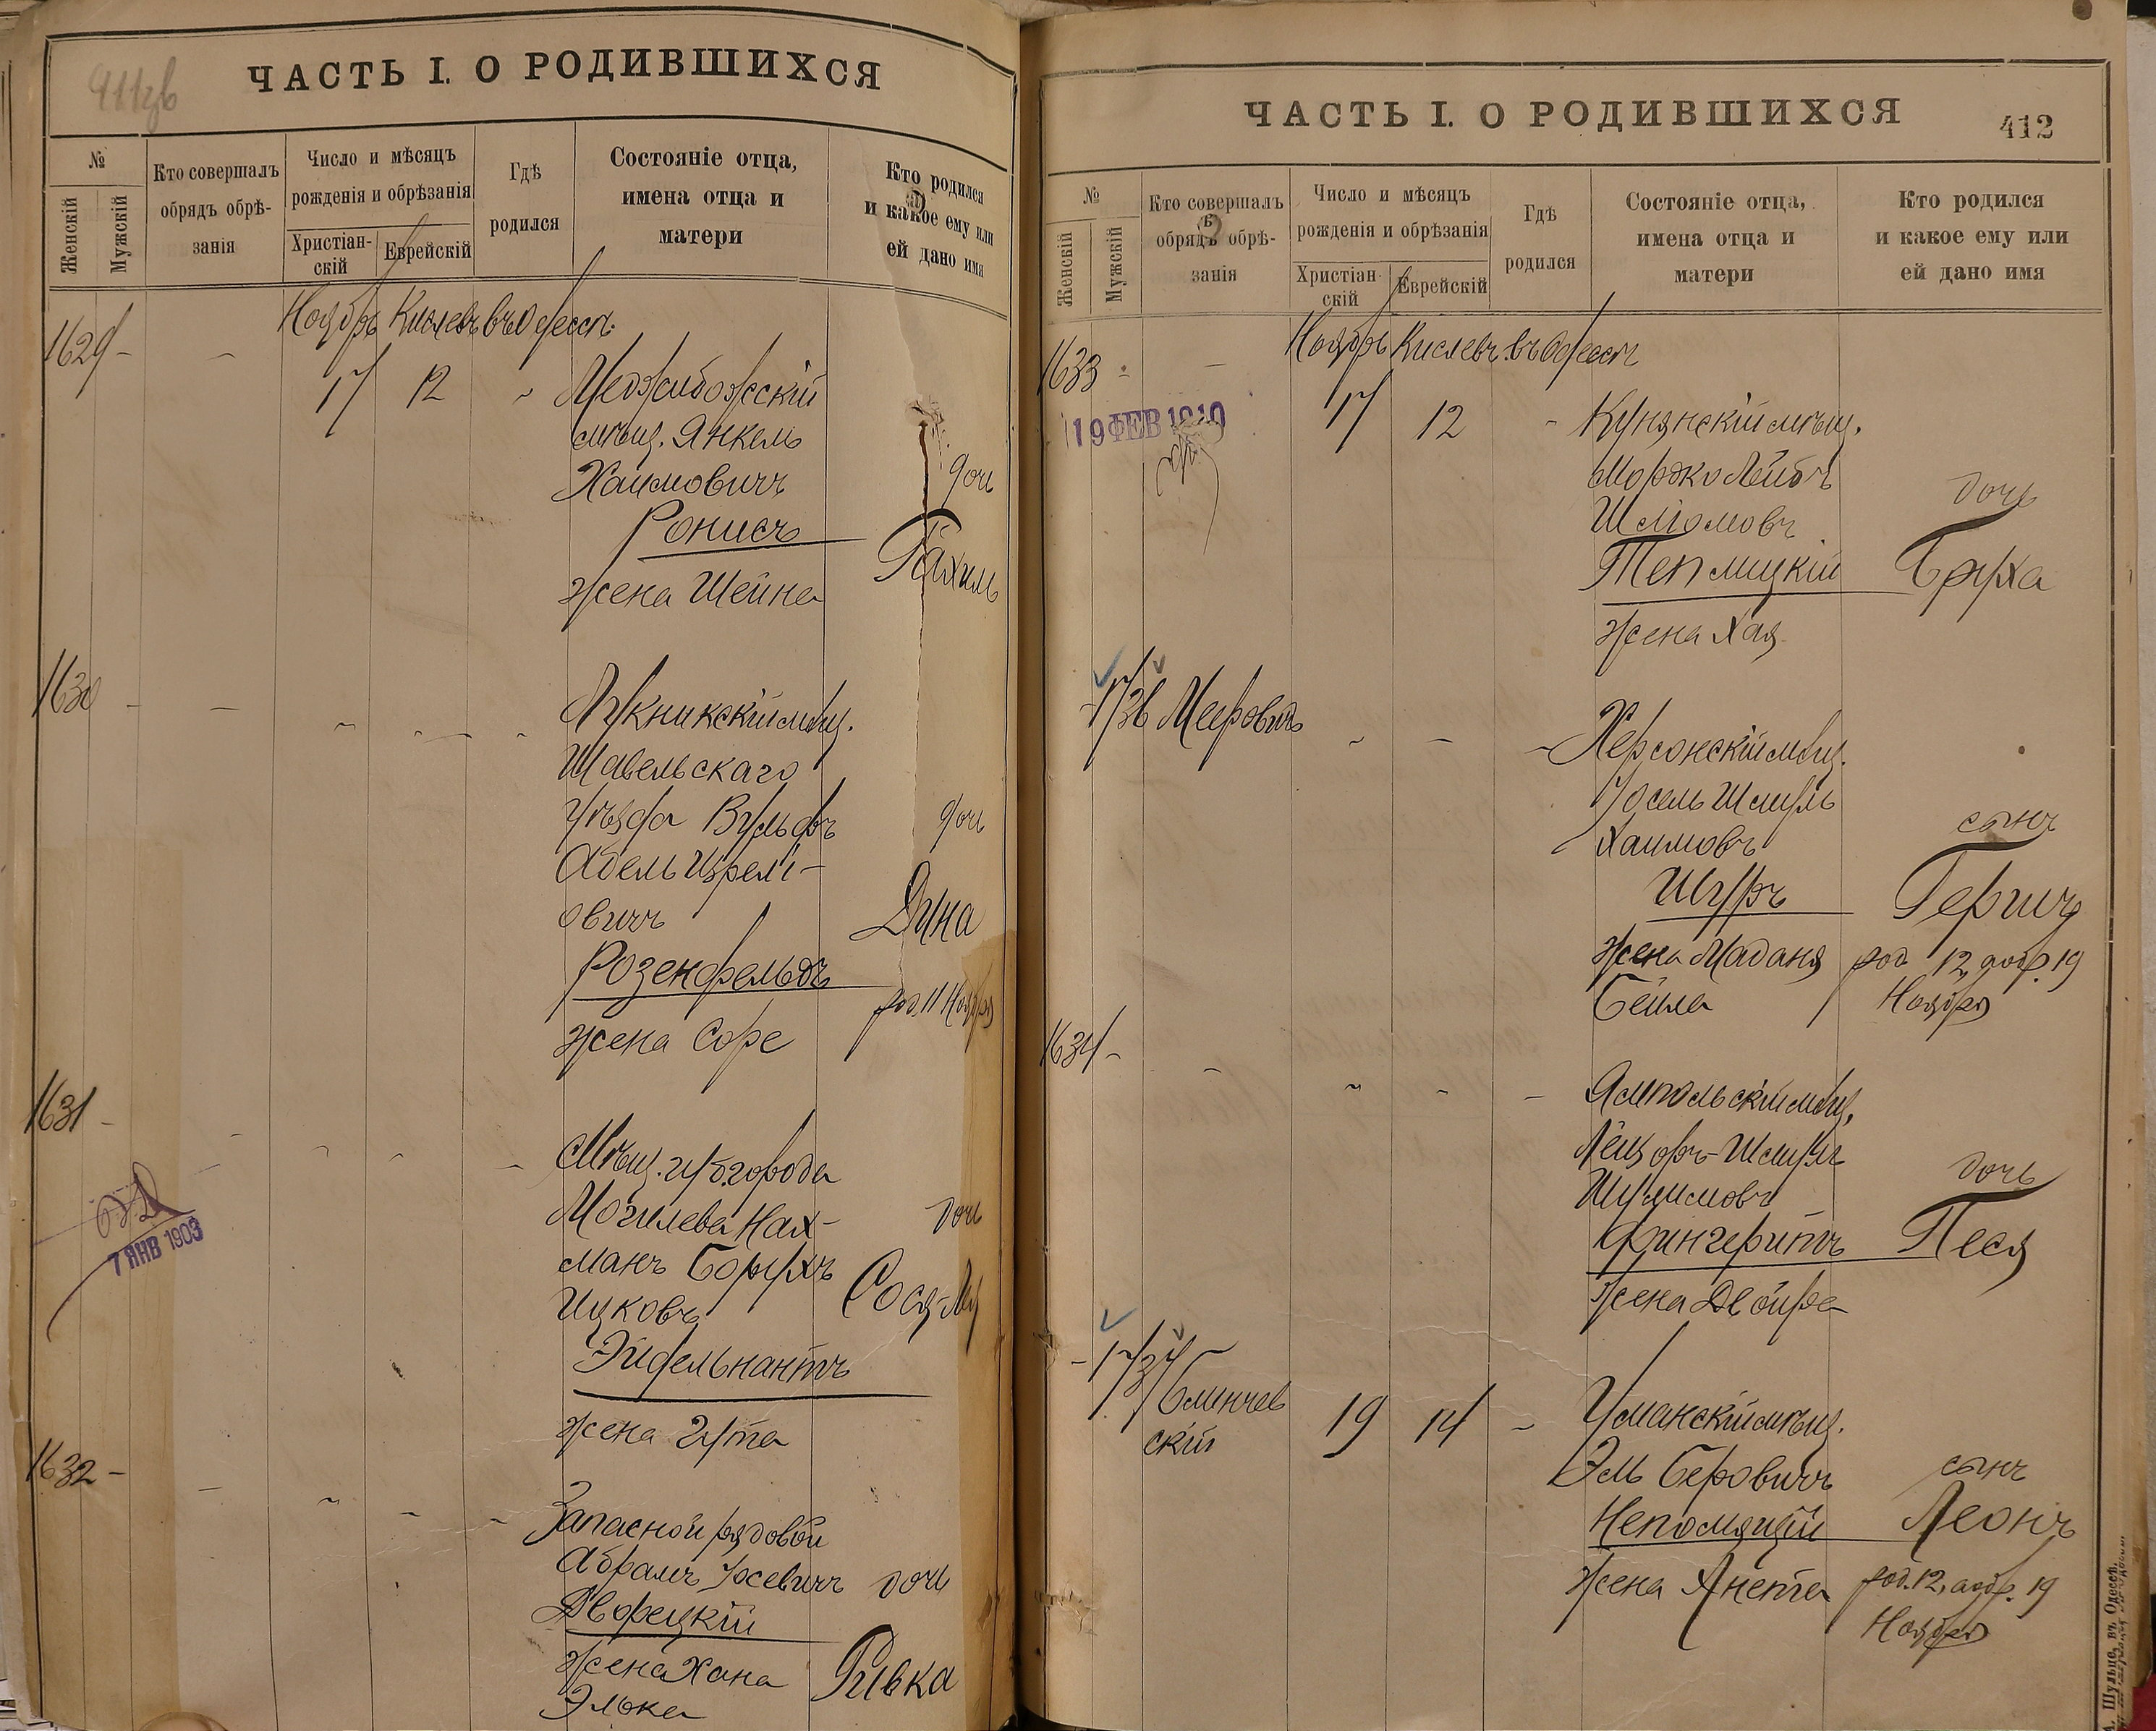 ЧАСТЬ I. О РОДИВШИХСЯ
№
Женскій
Мужскій
Кто совершалъ
обрядъ обрѣ-
занія
Число и мѣсяцъ
рожденія и обрѣзанія
Христіан-
скій
Еврейскій
Гдѣ
родился
Состояніе отца,
имена отца и
матери
Кто родился
и какое ему или
ей дано имя
Ноябрь Кислевъ въ Одессѣ
1629 - - 17 12 - Меджибожскій
мѣщ. Янкель
Хаимовичъ дочь
Ронисъ
Рахиль
жена Шейна
1630 - - - - -
мѣщ.
Шавельскаго
уѣзда Вульфъ дочь
Абель Изрелі-
овичъ Дина
Розенфельдъ
род. 11 Ноября
жена Соре
1631 - - - - - Мѣщ. губ. города
Могилева Нах- дочь
манъ Борухъ
Ицковъ Сося-Лея
Эйдельнантъ
жена Гута
7 ЯНВ 1903
1632 - - - - - Запасной рядовой
Абрамъ Іосевичъ дочь
Дворецкій
жена Хана Ривка
Элька
ЧАСТЬ I. О РОДИВШИХСЯ
412
№
Женскій
Мужскій
Кто совершалъ
обрядъ обрѣ-
занія
Число и мѣсяцъ
рожденія и обрѣзанія
Христіан-
скій
Еврейскій
Гдѣ
родился
Состояніе отца,
имена отца и
матери
Кто родился
и какое ему или
ей дано имя
Ноябрь Кислевъ въ Одессѣ
1633 - - 17 12 - Кунянскій мѣщ.
19 ФЕВ 1910
Мордко Лейбъ дочь
Шліомовъ
Теплицкій Бруха
жена Хая
- 1736 Мееровичъ - - - Херсонскій мѣщ.
Іосель Шмуль
Хаимовъ сынъ
Шуръ Гершъ
жена Маданя род. 12, аобр. 19
Бейла Ноября
1634 - - - - - Ямпольскій мѣщ.
Шмуль
Шулимовъ дочь
Фингеритъ Песя
жена Двойра
- 1737 Блинчев
скій 19 14 - Уманскій мѣщ.
Эль Беровичъ сынъ
Непомящій Леонъ
жена Анета род. 12, аобр. 19
Ноября
Шульце, въ Одессѣ.